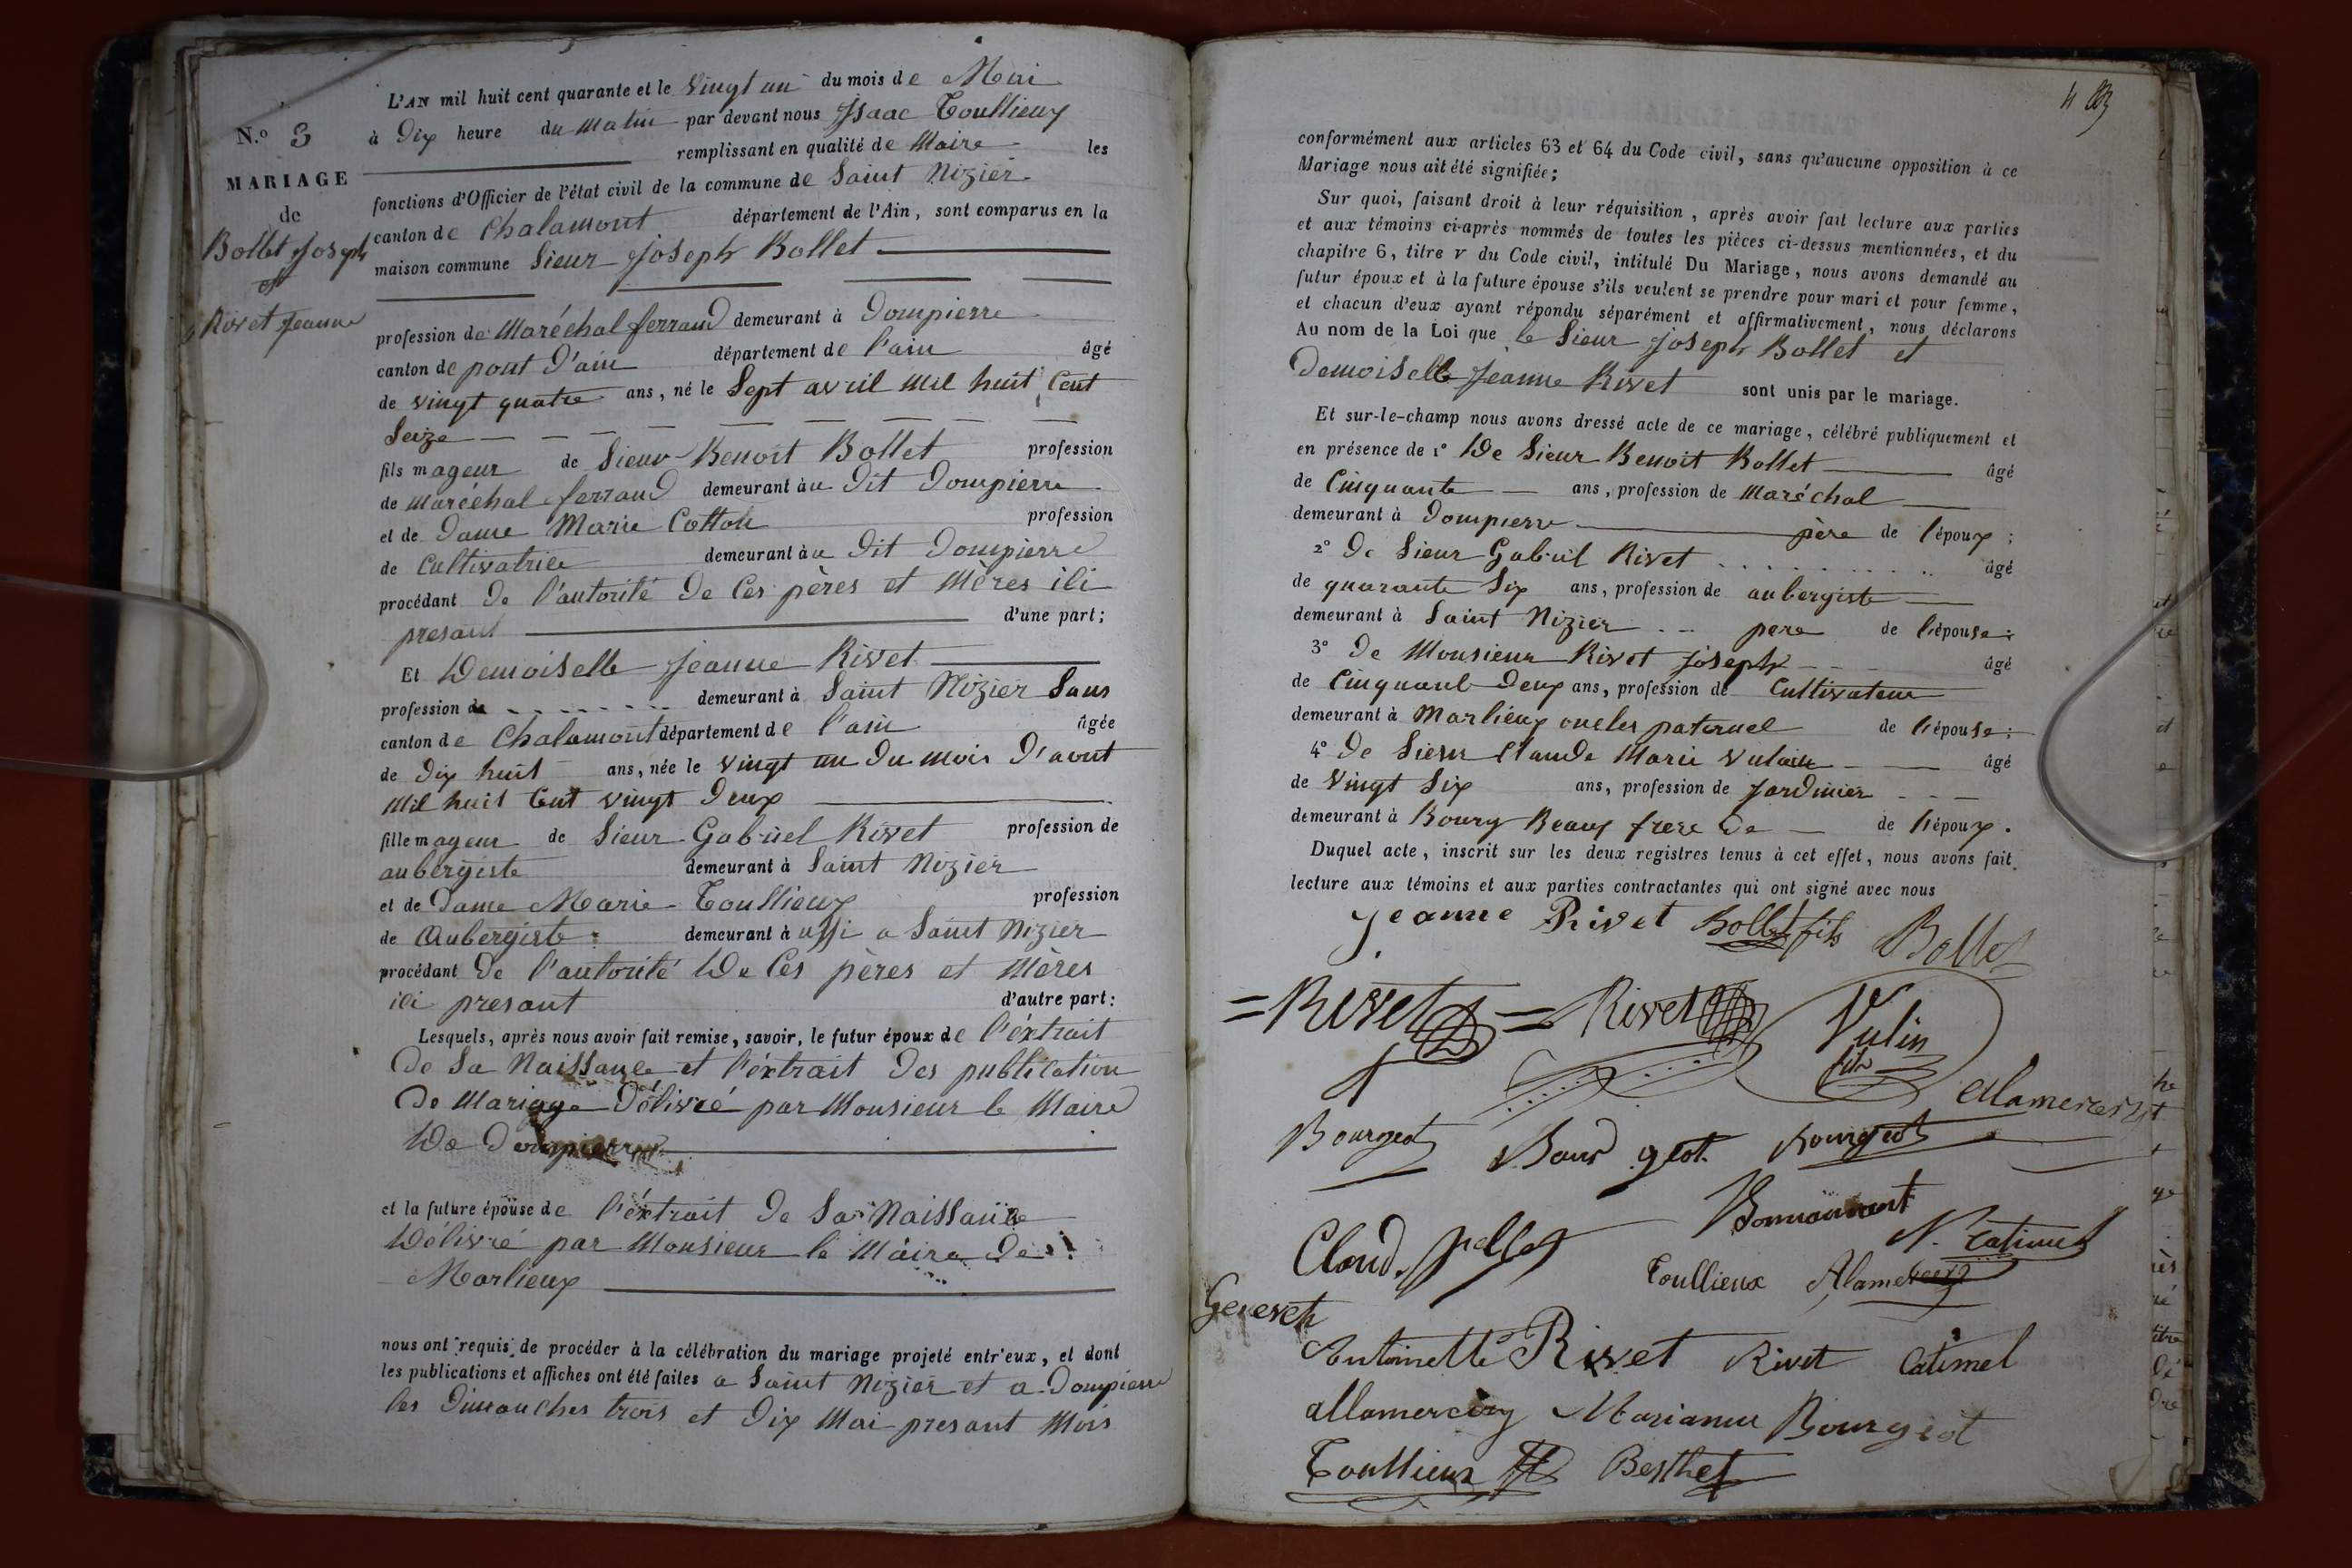 N.o 3
MARIAGE
de
Bollet Joseph
et
Rivet Jeanne
L'AN mil huit cent quarante et le vingt un du mois de Mai
à dix heure du matin par devant nous Isaac Toullieux
remplissant en qualité de Maire les
fonctions d'Officier de l'état civil de la commune de Saint Nizier
canton de Chalamont département de l'Ain, sont comparus en la
maison commune Sieur Joseph Bollet
profession de Maréchal ferrand demeurant à Dompierre
canton de pont d'ain département de l'ain âgé
de vingt quatre ans, né le Sept avril mil huit Cent
Seize
fils mageur de Sieur Benoit Bollet profession
de maréchal ferrand demeurant àu dit Dompierre
et de Dame Marie Cotton profession
de Cultivatrice demeurant àu dit Dompierre
procédant de l'autorité de Ces pères et Mères ili
presant d'une part;
Et Demoiselle Jeanne Rivet
profession de demeurant à Saint Nizier Sans
canton de Chalamont département de l'ain âgée
de dix huit ans, née le vingt un du mois d'aout
mil huit Cent vingt deux
fille mageur de Sieur Gabriel Rivet profession de
aubergiste demeurant à Saint Nizier
et de Dame Marie Toullieux profession
de Aubergiste demeurant à ussi a Saint Nizier
procédant de l'autorité de Ces pères et Mères
ici presant d'autre part:
Lesquels, après nous avoir fait remise, savoir, le futur époux de l'éxtrait
de Sa Naissance et l'éxtrait des publication
de Mariage délivré par Monsieur le Maire
de Dompierre
et la future épouse de l'éxtrait de Sa Naissance
délivré par Monsieur le Maire de
Marlieux
nous ont requis de procéder à la célébration du mariage projeté entr'eux, et dont
les publications et affiches ont été faites a Saint Nizier et a Dompierre
les dimanches trois et dix Mai presant Mois
conformément aux articles 63 et 64 du Code civil, sans qu'aucune opposition à ce
Mariage nous ait été signifiée;
Sur quoi, faisant droit à leur réquisition, après avoir fait lecture aux parties
et aux témoins ci-après nommés de toutes les pièces ci-dessus mentionnées, et du
chapitre 6, titre v du Code civil, intitulé Du Mariage, nous avons demandé au
futur époux et à la future épouse s'ils veulent se prendre pour mari et pour femme,
et chacun d'eux ayant répondu séparément et affirmativement, nous déclarons
Au nom de la Loi que le Sieur Joseph Bollet et
Demoiselle Jeanne Rivet sont unis par le mariage.
Et sur-le-champ nous avons dressé acte de ce mariage, célébré publiquement et
en présence de 1° De Sieur Benoit Bollet âgé
de Cinquante ans, profession de Maréchal
demeurant à Dompierre père de l'époux;
2° De Sieur Gabriel Rivet âgé
de quarante Six ans, profession de aubergiste
demeurant à Saint Nizier pere de l'épouse:
3° De Monsieur Rivet Joseph âgé
de Cinquant deux ans, profession de Cultivateur
demeurant à Marlieux oncles paternel de l'épouse:
4° De Sieur Claude Marie Vulain âgé
de vingt Six ans, profession de Jardinier
demeurant à Bourg Beaux frere de de l'époux.
Duquel acte, inscrit sur les deux registres tenus à cet effet, nous avons fait
lecture aux témoins et aux parties contractantes qui ont signé avec nous
Jeanne Rivet Bollet fils Bollet
Rivet Rivet Vulin
fils
Bourgeot Bourgeot Bourgeot
Claud. pellet
Toullieux
Antoinette Rivet Rivet Catimel
Marianne Bourgeot
Toullieux Berthet